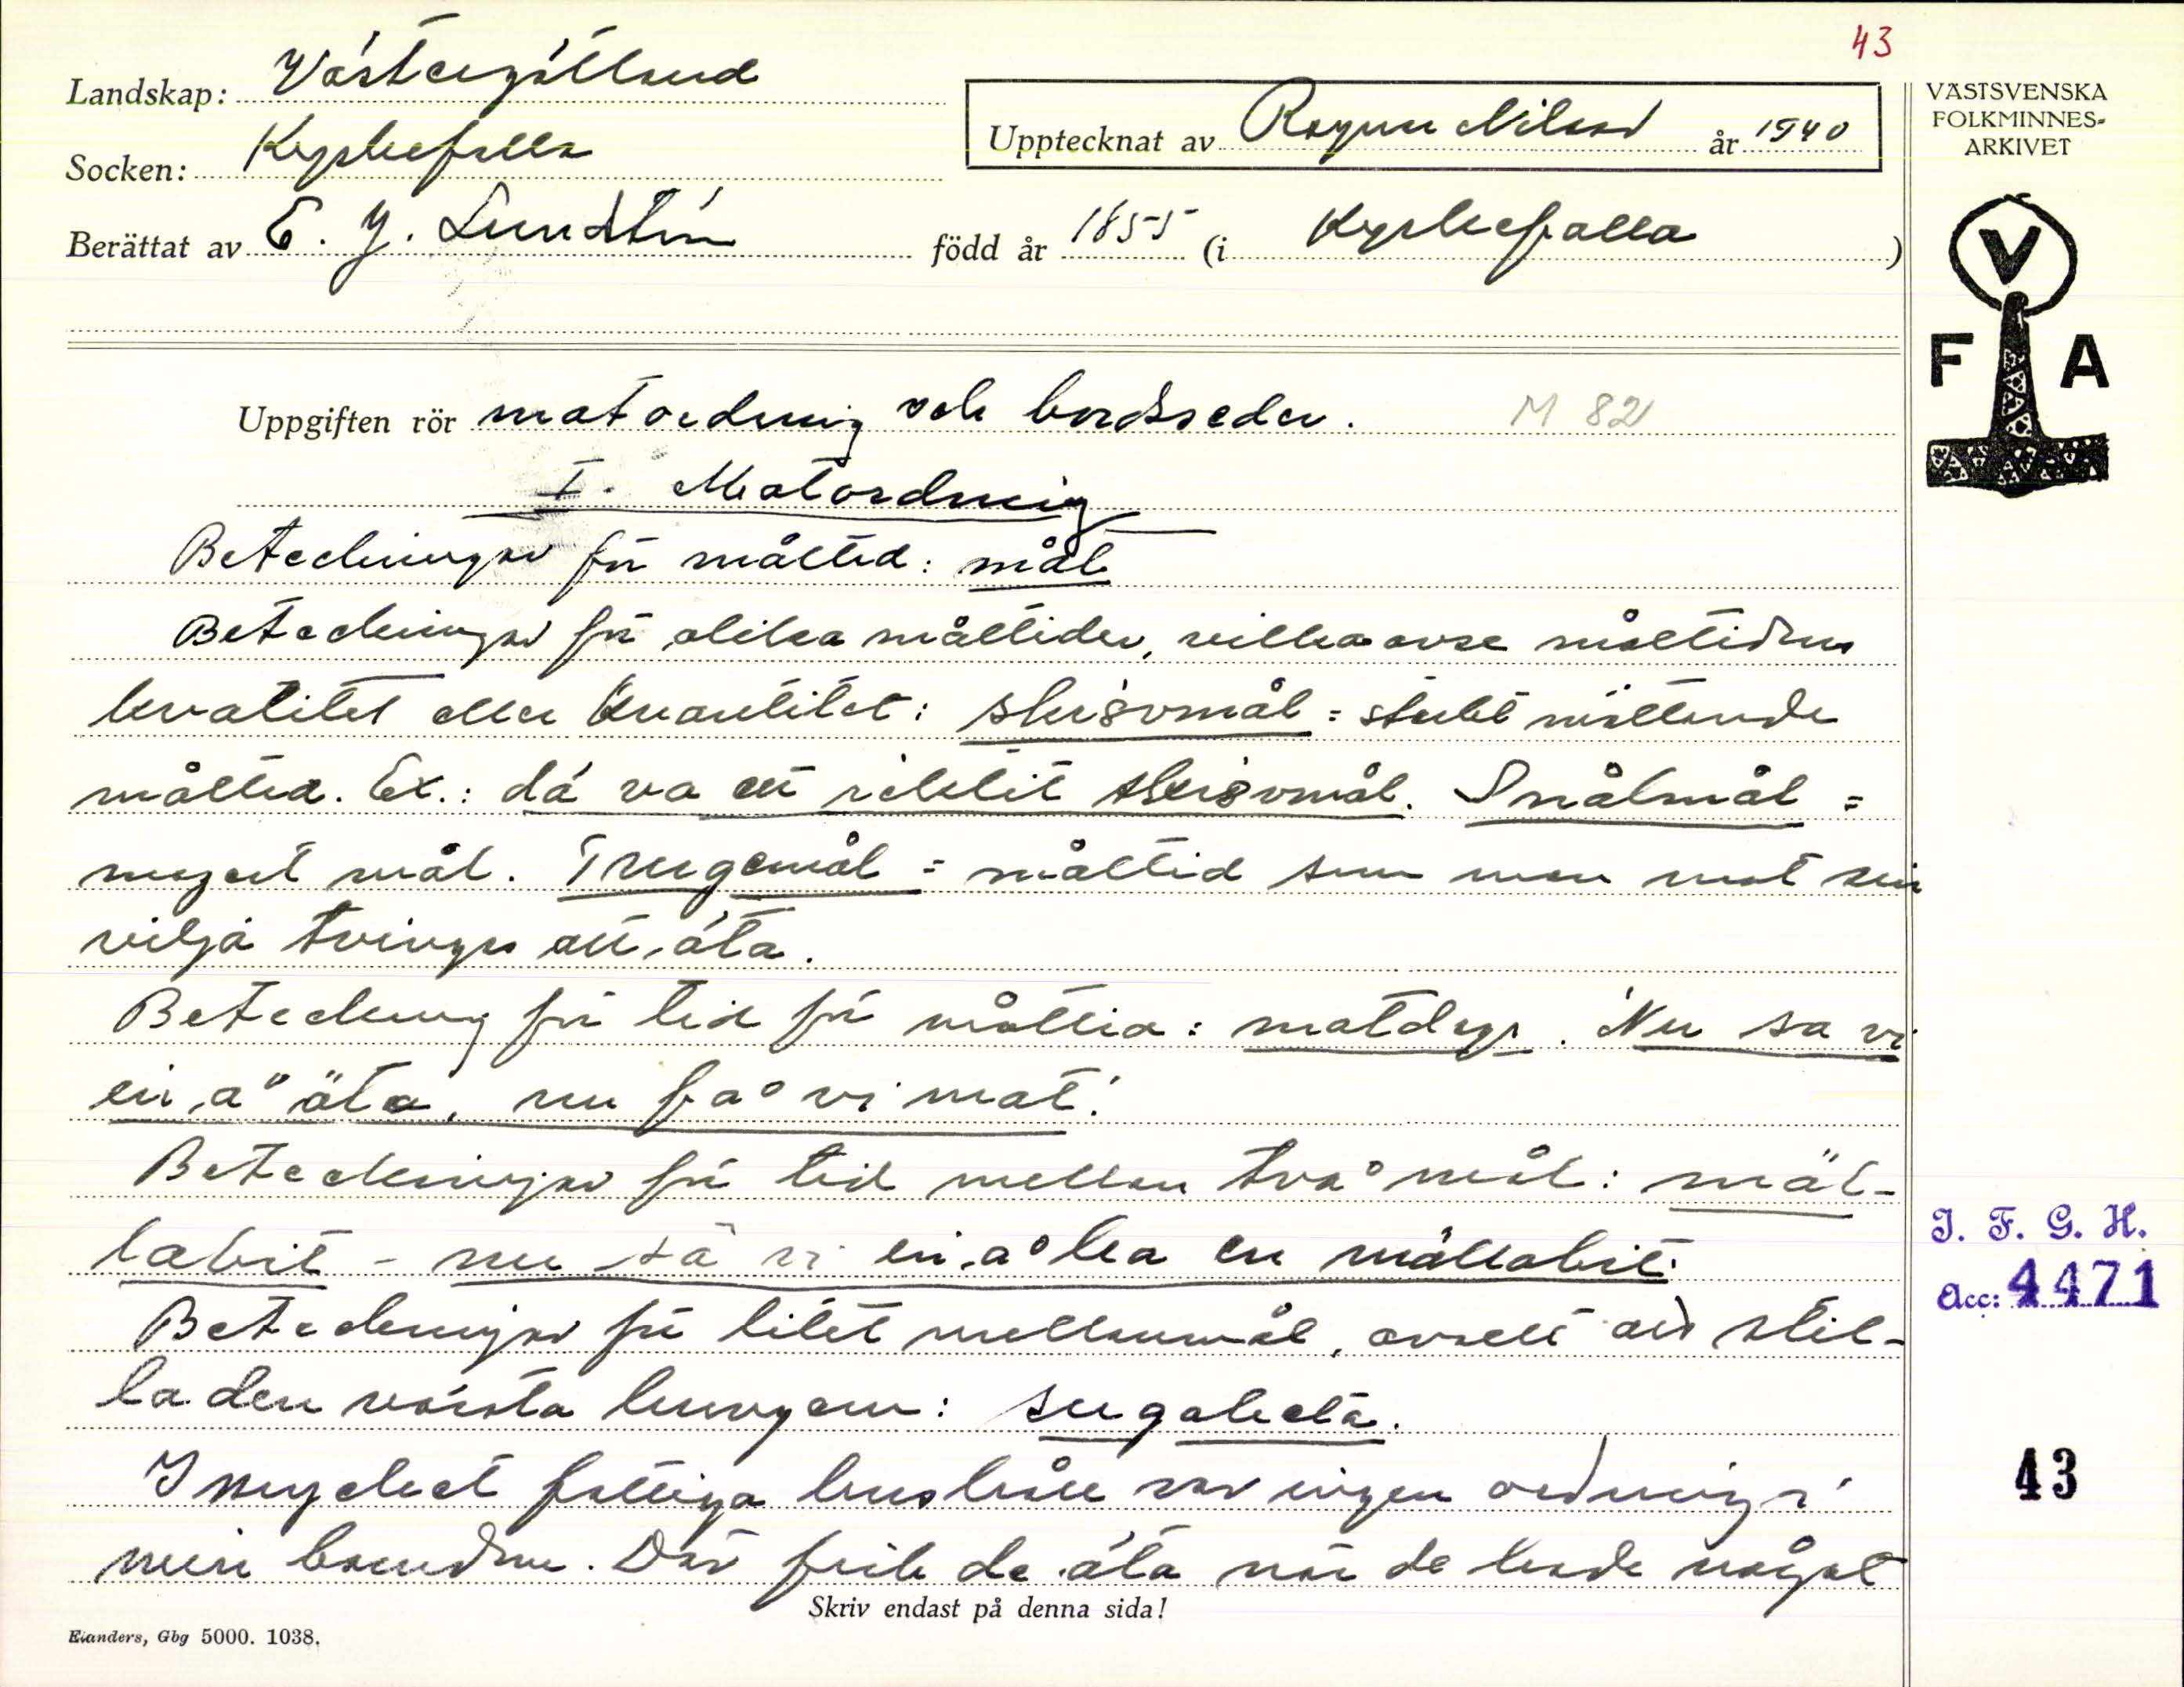 43
Landskap: Västergötland
Socken: Kyrkefalla
Upptecknat av Ragnar Nilsson år 1940
Berättat av E. J. Lundtén född år 1855 (i Kyrkefalla)
VÄSTSVENSKA
FOLKMINNES-
ARKIVET
V
F A
Uppgiften rör matordning och bordsseder. M 82
I. Matordning
Beteckningar för måltid: mål
Beteckningar för olika måltider, vilka avse måltidens
kvalitet eller kvantitet: skrovmål = starkt mättande
måltid. Ex.: dä va ett riktit skrovmål. Snålmål =
magert mål. Trugemål = måltid som man mot sin
vilja tvingas att äta.
Beteckning för tid för måltid: matdags. Nu sa vi
in å äta, nu få vi mat.
Beteckningar för tid mellan två mål: mäl-
labit - nu sa vi in å ha en mällabit.
Beteckningar för litet mellanmål, avsett att stil-
la den värsta hungern: sugabeta.
I mycket fattiga hushåll var ingen ordning i
min barndom. Där fick de äta när de hade något
Skriv endast på denna sida!
Elanders, Gbg 5000. 1038.
I. F. G. H.
Acc: 4471
43